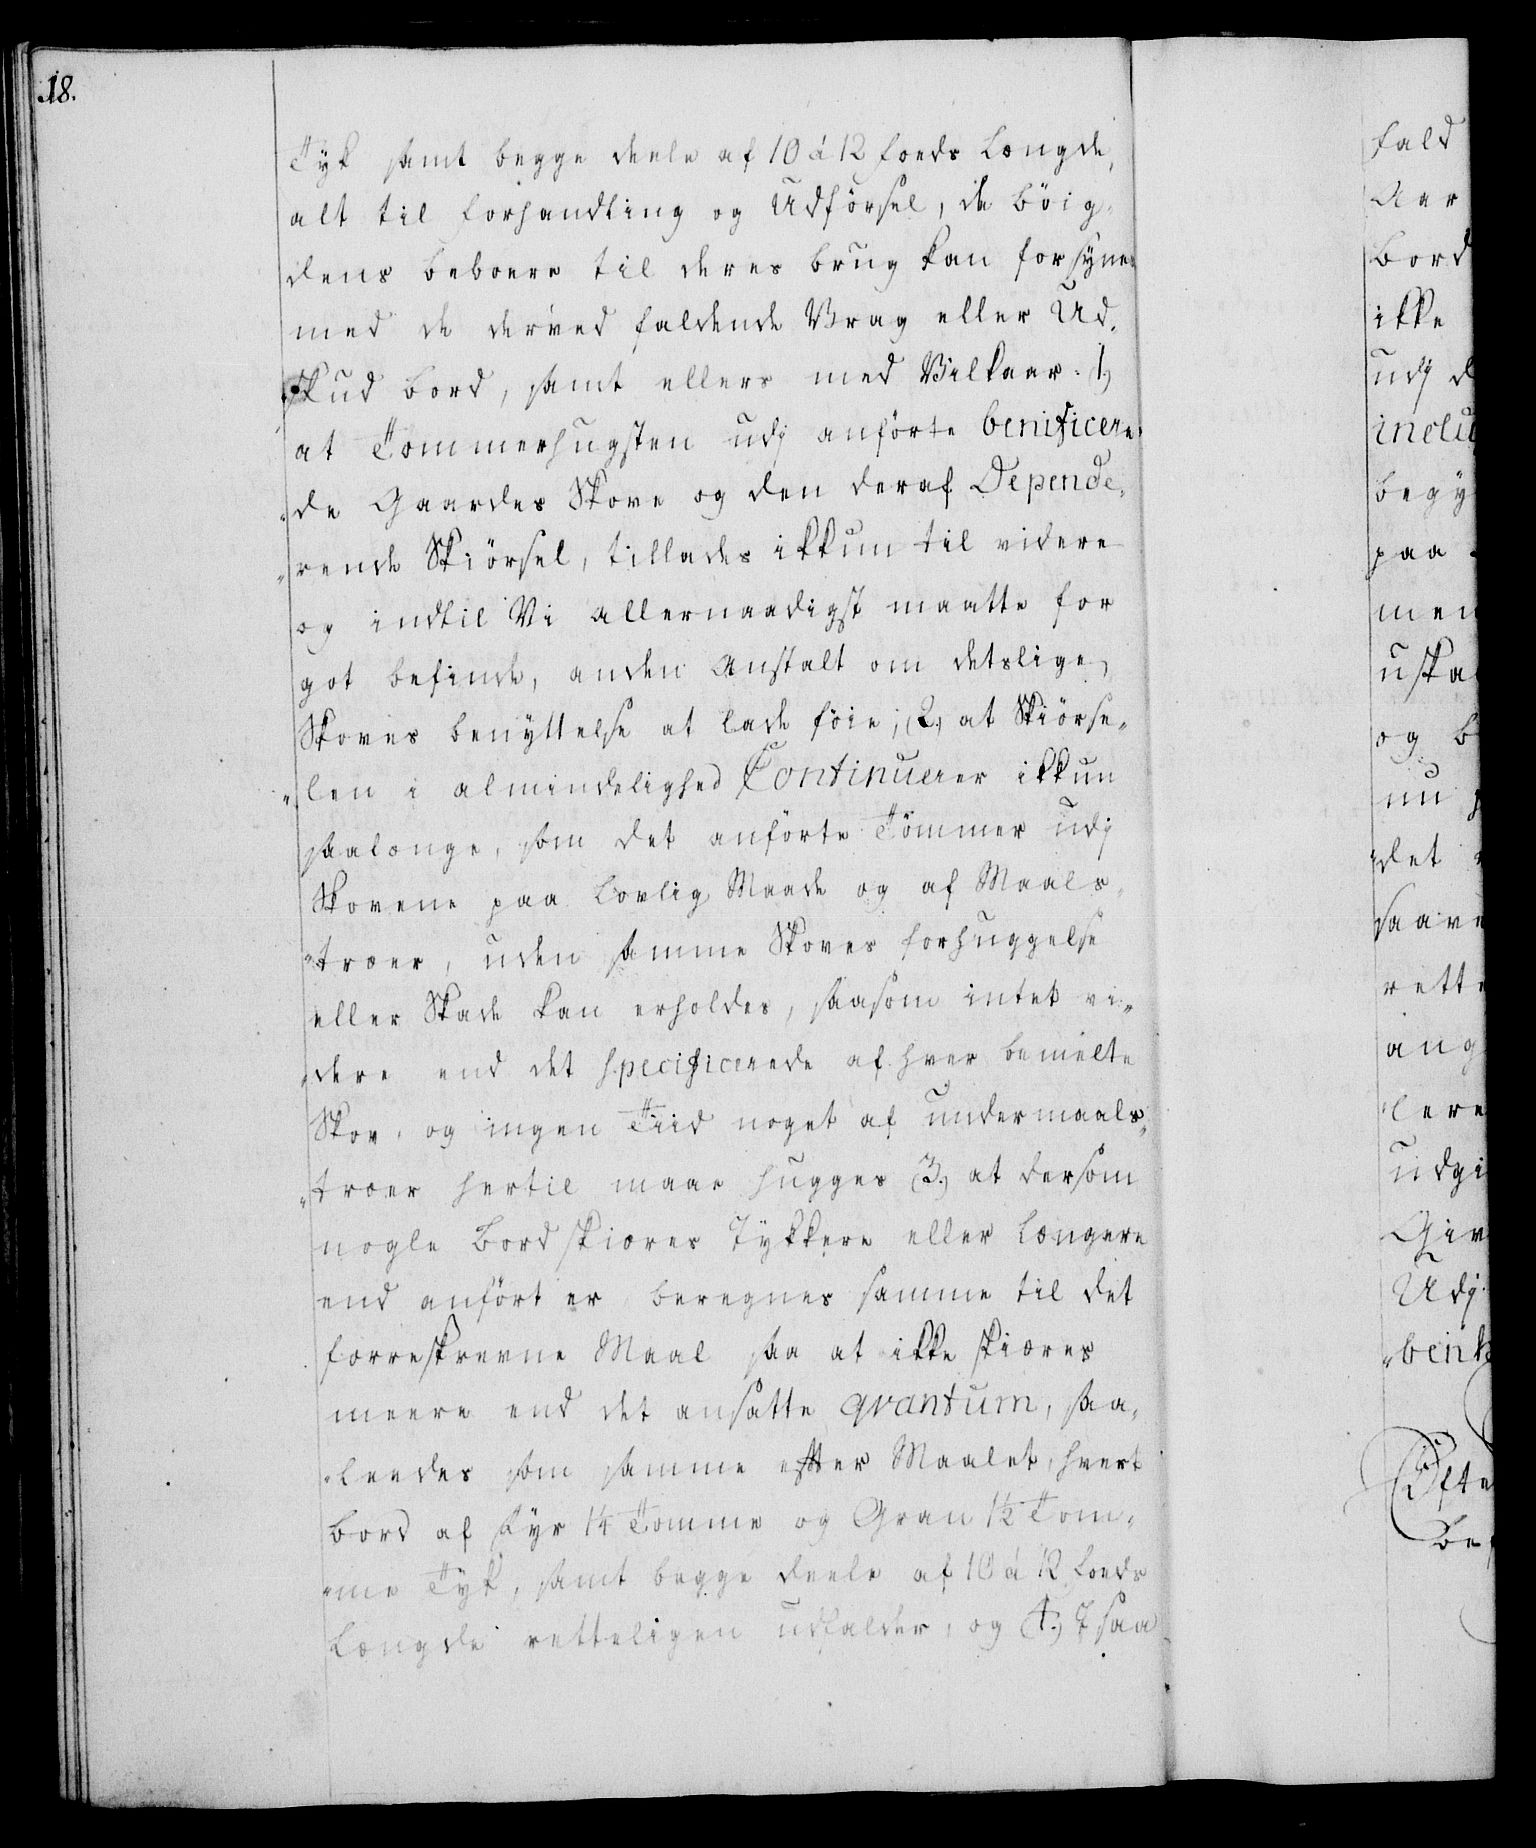 18.
Tyk samt begge deele af 10 á 12 foeds Længde,
alt til forhandling og Udförsel, da böig¬
dens beboere til deres brug kan forsynes
med de derved faldende Vrag eller Ud¬
skud bord, samt ellers med Vilkaar. (1,)
at Tømmerhugsten udj anförte benificere¬
„de Gaardes Skove og den deraf Depende¬
„rende Skiörsel, tillades ikkun til videre
og indtil Vi allernaadigst maatte for
got befinde, anden Anstalt om detslige
Skoves benyttelse at lade föie; (2,) at Skiörse„
„len i almindelighed Continuerer ikkun
saalænge, som det anförte Tömmer udj
Skovene paa lovlig Maade og af Maals„
„træer, uden samme Skoves forhuggelse
eller Skade kan erholdes, saasom intet vi„
„dere end det specificerede af hver bemelte
Skov, og ingen Tiid noget af undermaals„
„træer hertil maae hugges (3,) at dersom
nogle bord skiæres Tykkere eller længere
end anfört er beregnes samme til det
forreskrevne Maal saa at ikke skiæres
meere end det ansatte qvantum, saa„
„leedes som samme efter Maalet, hvert
bord af Fyr 1¼ Tomme og Gran 1½ Tom„
„me Tyk, samt begge deele af 10 á 12 foeds
Længde retteligen udfalder, og (4,) saa
fald
Aar
bord
ikke
udj d
inclu
begy
paa
men
uska
og b
nu
det
saave
rette
ang
lere
udgi
Giv
Udj
„benh
Efte
be